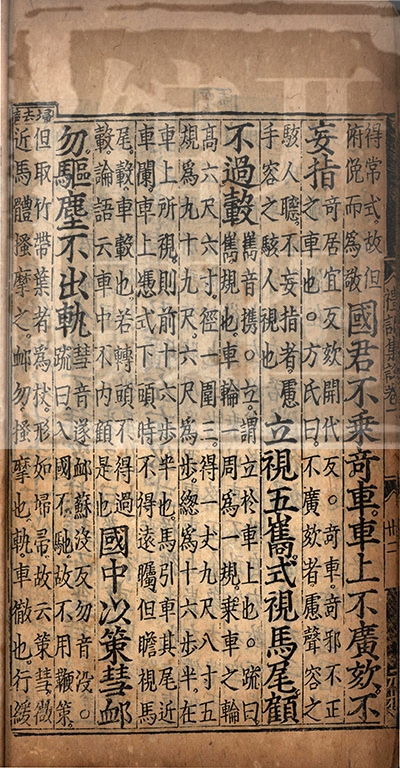 得常式故但
俯俛而為敬
國君不乘奇車車上不廣欬不
妄指
奇居宜反欬開代反。奇車。奇邪不正
之車也。方氏曰。不廣欬者慮聲容之
駭人聽。不妄指者。慮
手容之駭人視也
立視五雟式視馬尾顧
不過轂
雟音攜。立。謂立於車上也。疏曰。
雟規也。車輪一周為一規。乘車之輪
高六尺六寸。徑一圍三。得一丈九尺八寸。五
規為九十九尺。六尺為步。總為十六步半。在
車上所視。則前十六步半也。馬引車其尾近
車闌。車上憑式下頭時不得遠矚。但瞻視馬
尾。轂車轂也。若轉頭不得過
轂。論語云車中不內顧是也
國中以策彗卹
勿驅塵不出軌
彗音遂卹蘇沒反勿音沒。
疏曰入國不馳故不用鞭策。
但取竹帶葉者為杖。形如埽帚。故云策彗。微
近馬體搔摩之。卹勿。搔摩也。軌。車轍也。行緩
禮記集說卷一
廿二